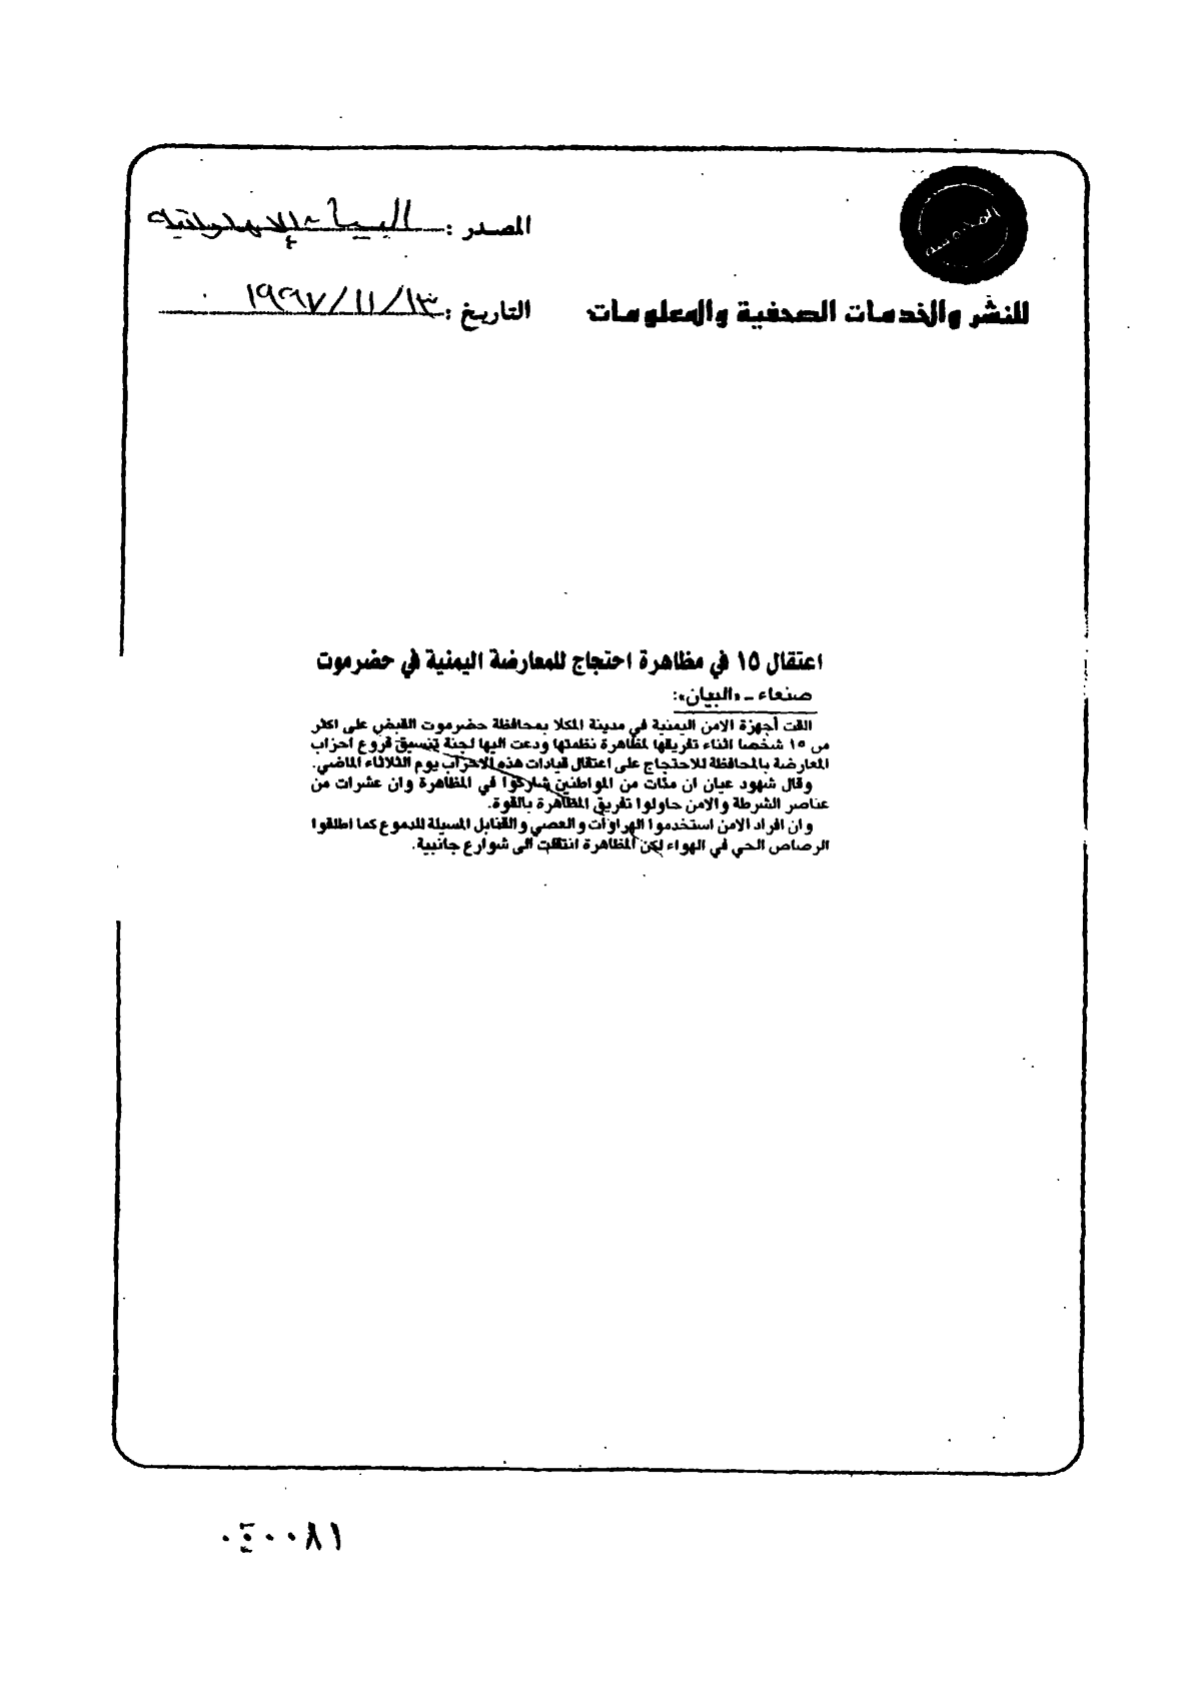 المصدر : البيان الإماراتية
التاريخ : ١٩٩٧/١١/١٣
للنشر والخدمات الصحفية والمعلومات
اعتقال ١٥ في مظاهرة احتجاج للمعارضة اليمنية في حضرموت
صنعاء ـ «البيان»:
القت أجهزة الامن اليمنية في مدينة المكلا بمحافظة حضرموت القبض على اكثر
من ١٥ شخصا اثناء تفريقها لمظاهرة نظمتها ودعت اليها لجنة تنسيق فروع احزاب
المعارضة بالمحافظة للاحتجاج على اعتقال قيادات هذه الاحزاب يوم الثلاثاء الماضي.
وقال شهود عيان ان مئات من المواطنين شاركوا في المظاهرة وان عشرات من
عناصر الشرطة والامن حاولوا تفريق المظاهرة بالقوة.
وان افراد الامن استخدموا الهراوات والعصي والقنابل المسيلة للدموع كما اطلقوا
الرصاص الحي في الهواء لكن المظاهرة انتقلت الى شوارع جانبية.